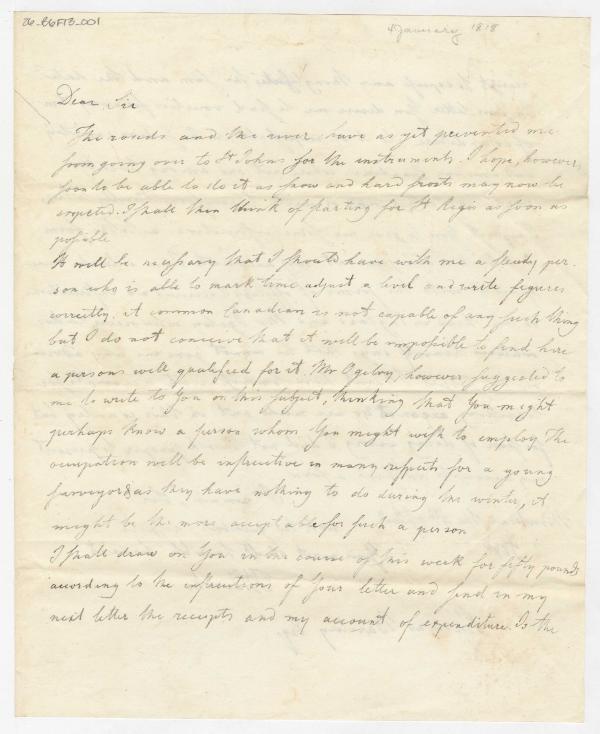 26-B6F13-001
4 January 1818
Dear Sir
The roads and the river have as yet prevented me
from going over to St Johns for the instruments. I hope, however,
soon to be able to do it as snow and hard frosts may now be
expected. I shall then think of starting for St Regis as soon as
possible
It will be necessary that I should have with me a steady per-
son who is able to mark time adjust a level and write figures
correctly. A common Canadian is not capable of any such thing
but I do not conceive that it will be impossible to find here
a persons well qualified for it. Mr Ogilvy, however suggested to
me to write to You on this subject, thinking that You might
perhaps know a person whom You might wish to employ. The
occupation will be instructive in many respects for a young
surveyor & as they have nothing to do during the winter, it
might be the more acceptable for such a person
I shall draw on You in the course of this week for fifty pounds
according to the instructions of Your letter and send in my
next letter the receipts and my account of expenditure. Is the